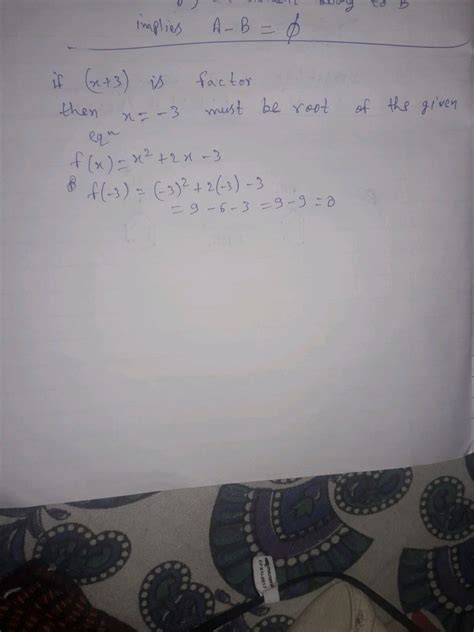 implies A - B = ϕ
if (x+3) is factor
then x = -3 must be root of the given
eqⁿ
f(x) = x² + 2x - 3
f(-3) = (-3)² + 2(-3) - 3
= 9 - 6 - 3 = 9 - 9 = 0